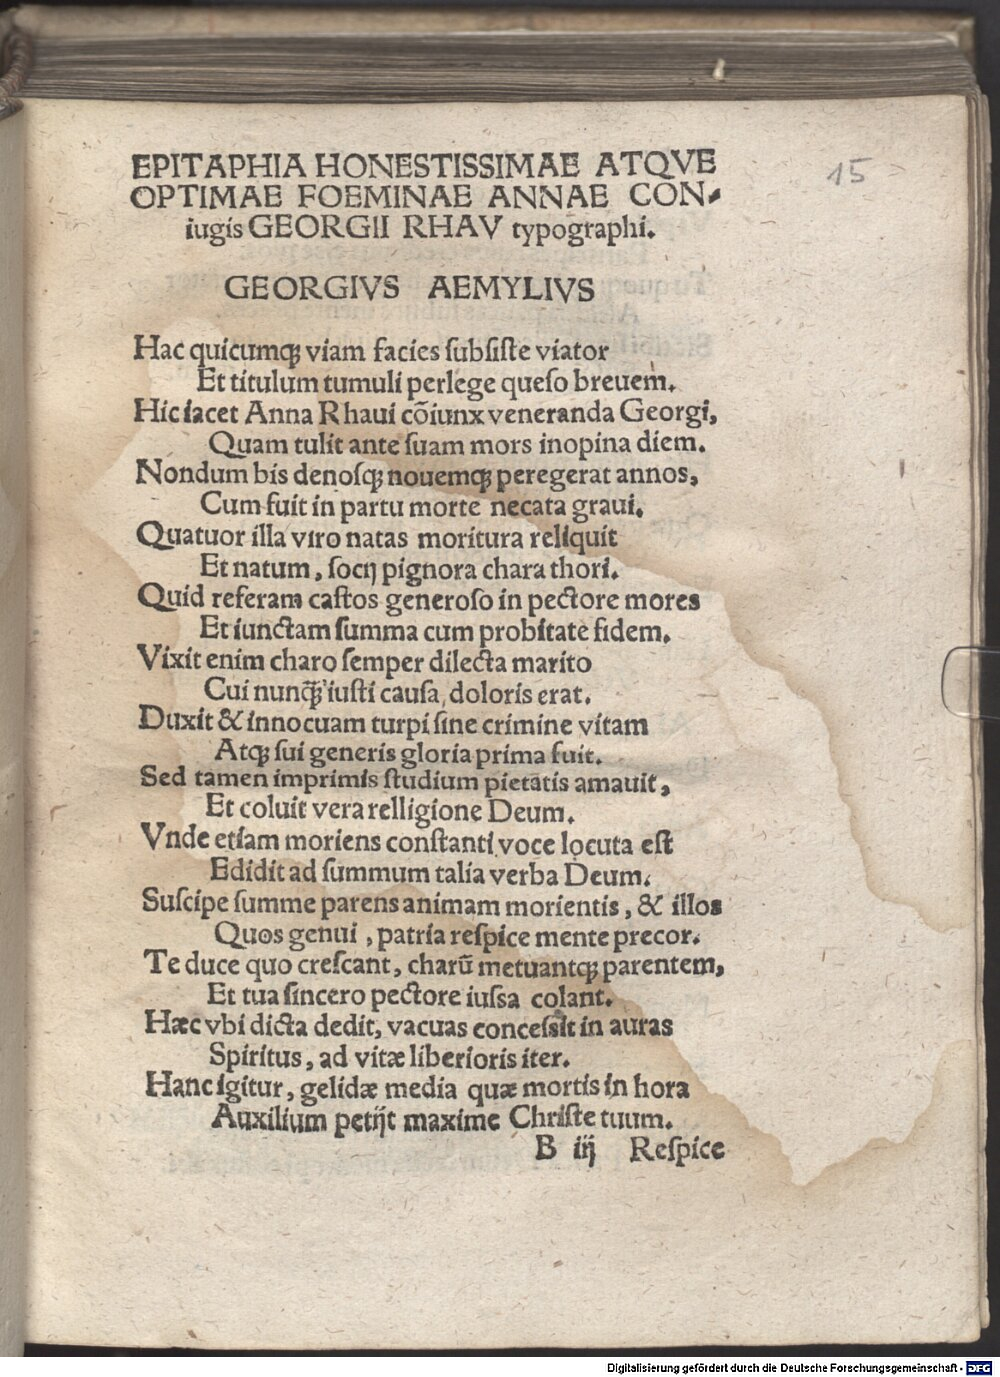 EPITAPHIA HONESTISSIMAE ATQVE
OPTIMAE FOEMINAE ANNAE CON-
iugis GEORGII RHAV typographi.
15
GEORGIVS AEMYLIVS
Hac quicumqꝫ viam facies ſubſiſte viator
Et titulum tumuli perlege queſo breuem.
Hic iacet Anna Rhaui cõiunx veneranda Georgi,
Quam tulit ante ſuam mors inopina diem.
Nondum bis denoſqꝫ nouemqꝫ peregerat annos,
Cum fuit in partu morte necata graui.
Quatuor illa viro natas moritura reliquit
Et natum, ſocij pignora chara thori.
Quid referam caſtos generoſo in pectore mores
Et iunctam ſumma cum probitate fidem.
Vixit enim charo ſemper dilecta marito
Cui nunqꝫ̃ iuſti cauſa doloris erat.
Duxit & innocuam turpi ſine crimine vitam
Atqꝫ ſui generis gloria prima fuit.
Sed tamen imprimis ſtudium pietatis amauit,
Et coluit vera relligione Deum.
Vnde etiam moriens conſtanti voce locuta eſt
Edidit ad ſummum talia verba Deum.
Suſcipe ſumme parens animam morientis, & illos
Quos genui, patria reſpice mente precor.
Te duce quo creſcant, charũ metuantqꝫ parentem,
Et tua ſincero pectore iuſſa colant.
Hæc vbi dicta dedit, vacuas conceſſit in auras
Spiritus, ad vitæ liberioris iter.
Hanc igitur, gelidæ media quæ mortis in hora
Auxilium petijt maxime Chriſte tuum.
B iij Reſpice
Digitalisierung gefördert durch die Deutsche Forschungsgemeinschaft - DFG